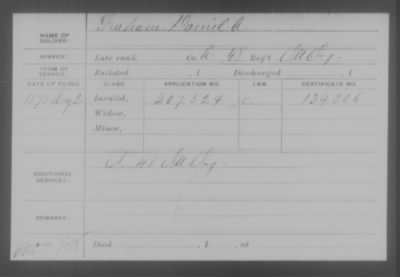 NAME OF SOLDIER: Graham, Daniel A.
SERVICE: Late rank, Co. A, 48 Reg't Ill Inf
TERM OF SERVICE: Enlisted , 1 Discharged , 1
DATE OF FILING. CLASS. APPLICATION NO. LAW. CERTIFICATE NO.
Invalid, 207.524 C. 139.366
Widow,
Minor,
ADDITIONAL SERVICES: 48 Ill Inf
REMARKS:
Died , 1 , at